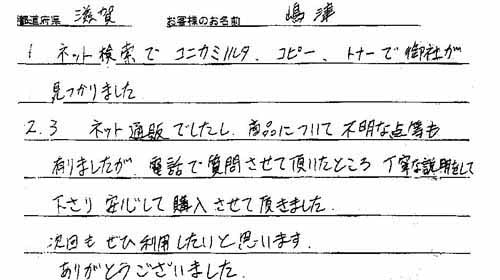 都道府県 滋賀 お客様のお名前 嶋津
1 ネット検索で コニカミノルタ、コピー、トナーで御社が
見つかりました
2.3 ネット通販でしたし、商品について不明な点等も
有りましたが、電話で質問させて頂いたところ 丁寧な説明をして
下さり 安心して購入させて頂きました.
次回も ぜひ利用したいと思います.
ありがとうございました.